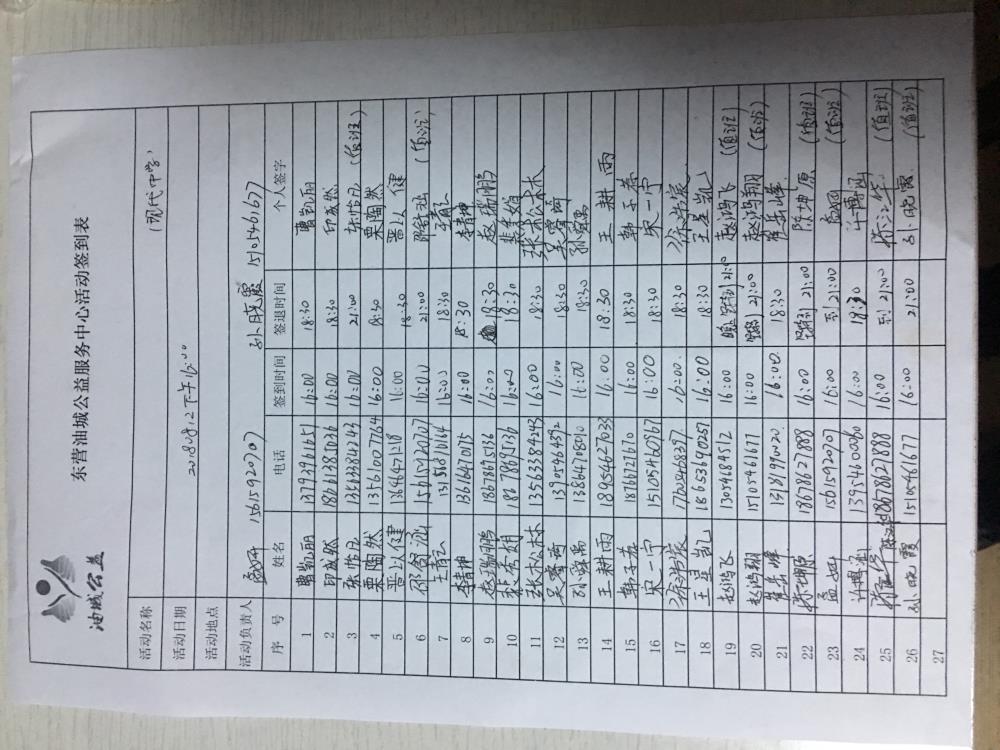 油城公益
东营油城公益服务中心活动签到表
活动名称 (现代中学)
活动日期 2018.08.12 下午16:00
活动地点
活动负责人 孟妞 15615920707 孙晓霞 15105461677
序 号 姓名 电话 签到时间 签退时间 个人签字
1 曹凯丽 16:00 18:30 曹凯丽
2 印成然 18661385036 16:00 18:30 印成然
3 张怡凡 13563384243 16:00 21:00 张怡凡 (值班)
4 栗陶然 13561007764 16:00 18:30 栗陶然
5 晋以健 16:00 18:30 晋以健
6 16:00 21:00 (值班)
7 16:00 18:30
8 李靖坤 13616471075 16:00 18:30 李靖坤
9 赵瑞鹏 18678675536 16:00 18:30 赵瑞鹏
10 18678693136 16:00 18:30
11 张松林 13563384243 16:00 18:30 张松林
12 13905464592 16:00 18:30
13 13864708010 16:00 18:30
14 王耕雨 18954627033 16:00 18:30 王耕雨
15 韩子荞 18766721670 16:00 18:30 韩子荞
16 宋一宁 15105460967 16:00 18:30 宋一宁
17 徐浩宸 17605468397 16:00 18:30 徐浩宸
18 王星凯 18653690257 16:00 18:30 王星凯
19 赵鸿飞 13054684512 16:00 21:00 赵鸿飞 (值班)
20 赵鸿翔 15105461677 16:00 21:00 赵鸿翔 (值班)
21 崔乐峰 13181997020 16:00 18:30 崔乐峰
22 陈坤原 18678627888 16:00 21:00 陈坤原 (值班)
23 孟妞 15615920707 16:00 到21:00 孟妞 (值班)
24 许博涵 13954600080 16:00 18:30 许博涵
25 18678627888 16:00 到21:00 (值班)
26 孙晓霞 15105461677 16:00 21:00 孙晓霞 (值班)
27